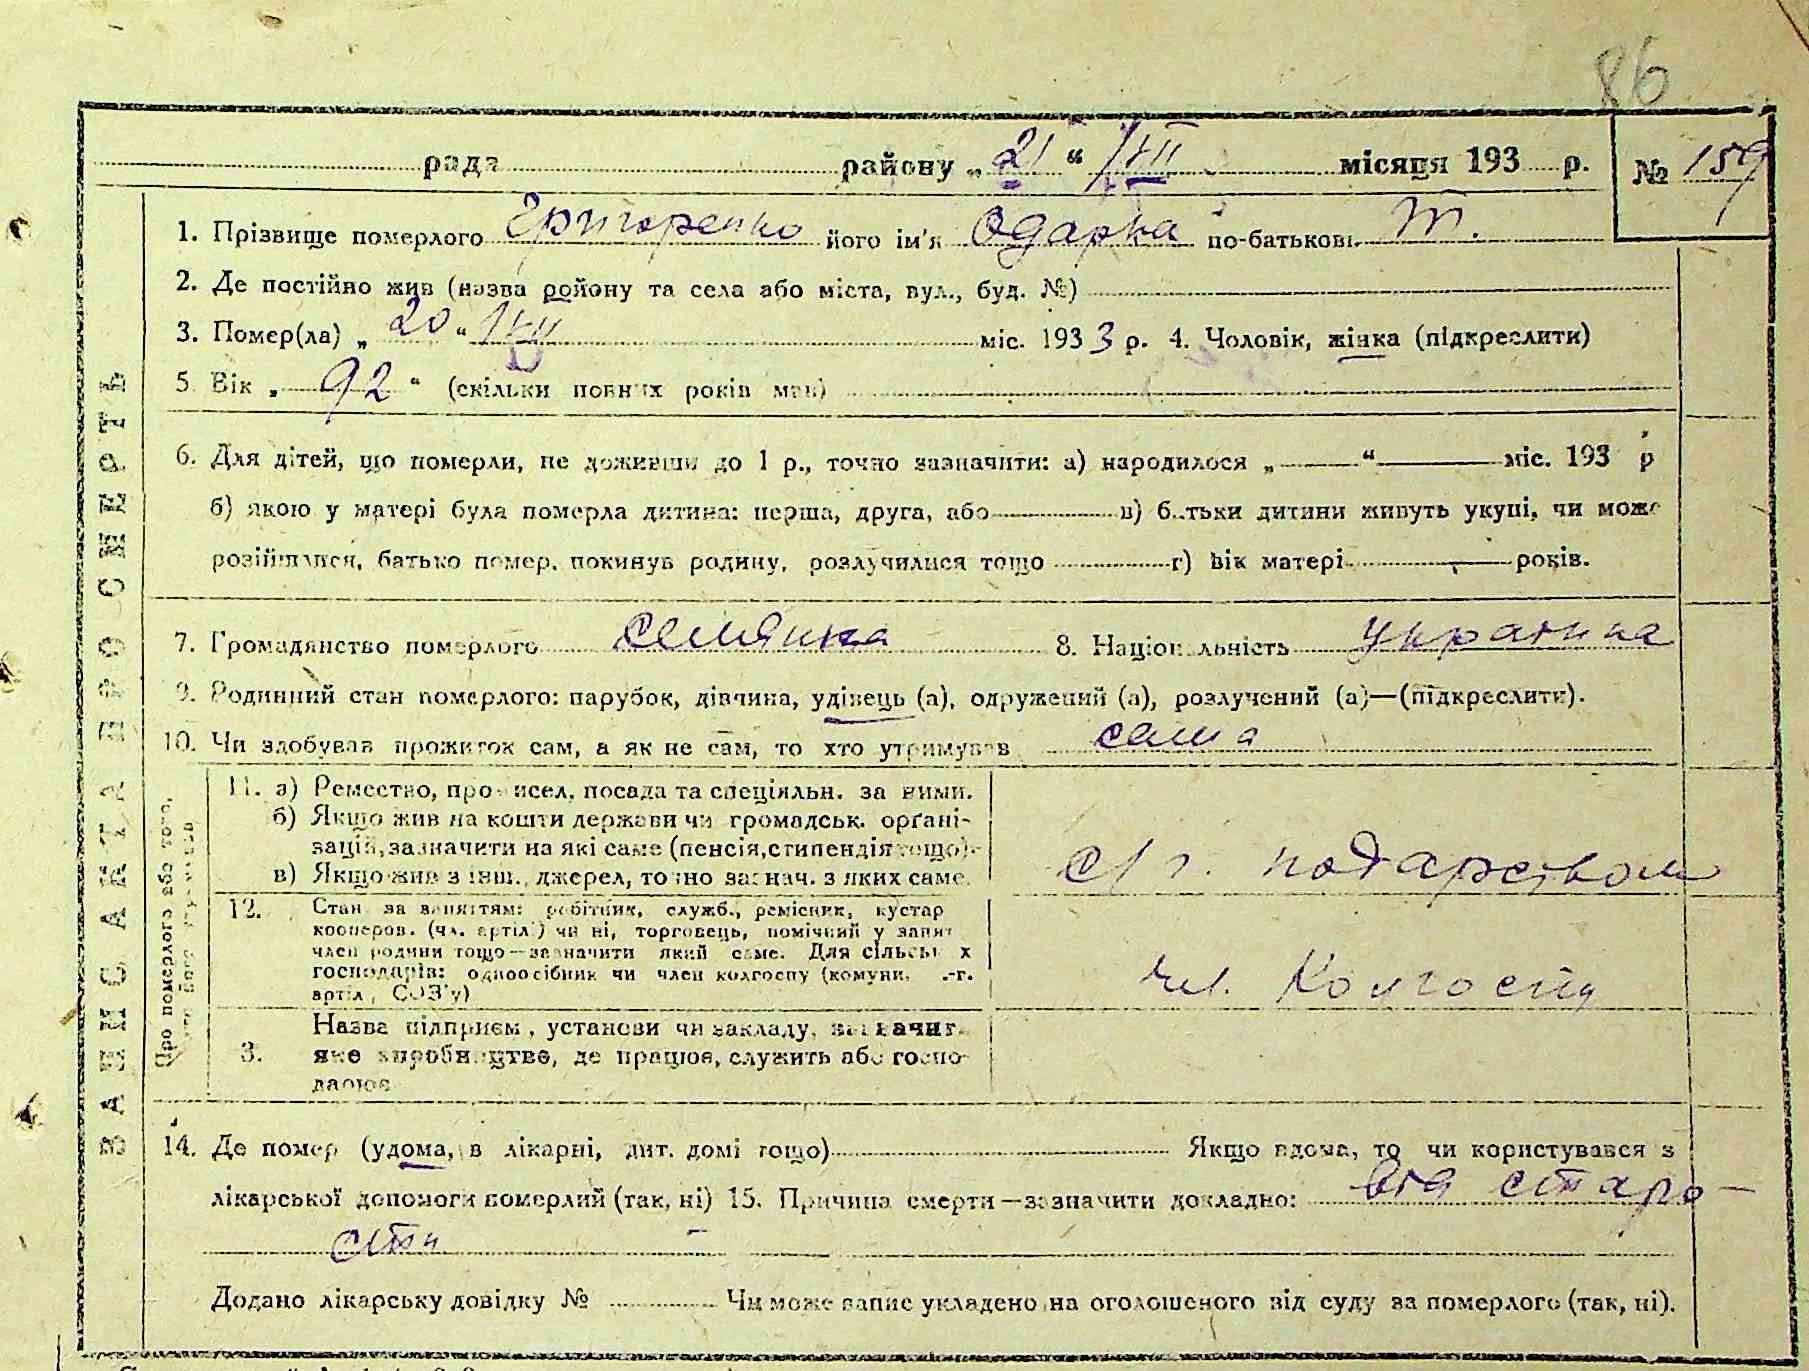 86
рада району „21“ місяця 193 р. № 159
1. Прізвище померлого Григоренко його ім'я Одарка по-батькові Т.
2. Де постійно жив (назва району та села або міста, вул., буд. №)
3. Помер(ла) „20“ міс. 1933 р. 4. Чоловік, жінка (підкреслити)
5. Вік „92“ (скільки повних років мав)
6. Для дітей, що померли, не доживши до 1 р., точно зазначити: а) народилося „ “ міс. 193 р
б) якою у матері була померла дитина: перша, друга, або в) батьки дитини живуть укупі, чи може
розійшлися, батько помер, покинув родину, розлучилися тощо г) вік матері років.
7. Громадянство померлого селянка 8. Національність украинка
9. Родинний стан померлого: парубок, дівчина, удівець (а), одружений (а), розлучений (а)—(підкреслити).
10. Чи здобував прожиток сам, а як не сам, то хто утримував сама
ЗАПИС АКТА ПРО СМЕРТЬ
Про померлого або того,
11. а) Ремество, промисел, посада та спеціяльн. за ними.
б) Якщо жив на кошти держави чи громадськ. орґані-
зацій, зазначити на які саме (пенсія, стипендія тощо).
в) Якщо жив з інш. джерел, точно зазнач. з яких саме.
с/г.
12. Стан за заняттям: робітник, служб., ремісник, кустар
кооперов. (чл. артілі) чи ні, торговець, помічний у занят
член родини тощо—зазначити який саме. Для сільськ х
господарів: одноосібник чи член колгоспу (комуни, .-г.
артіл, СОЗ'у)
чл. Колгоспу
3. Назва підприєм., установи чи закладу, зазначит.
яке виробництво, де працює, служить або госпо-
дарює
14. Де помер (удома, в лікарні, дит. домі тощо) Якщо вдома, то чи користувався з
лікарської допомоги померлий (так, ні) 15. Причина смерти—зазначити докладно: від старо-
сти
Додано лікарську довідку № Чи може запис укладено на оголошеного від суду за померлого (так, ні).